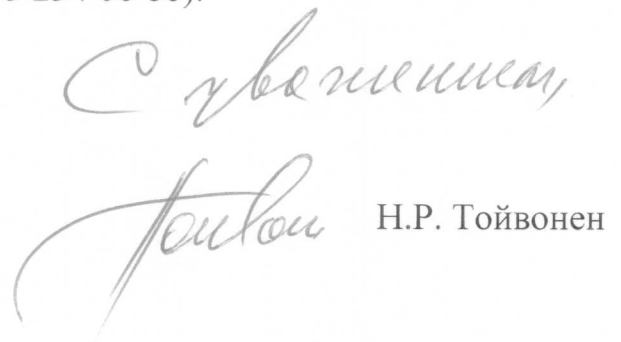 С уважением,
Н.Р. Тойвонен